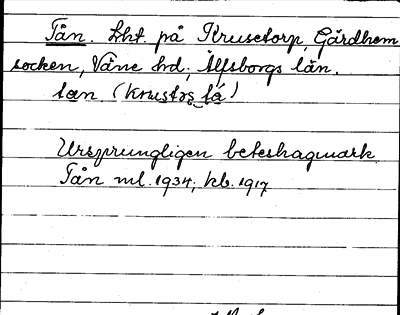 Tån. Lht. på Krusetorp, Gärdhem
socken, Väne hd; Älfsborgs län.
tan (krustǫs tá)
Ursprungligen beteshagmark
Tån ml. 1934; kb. 1917